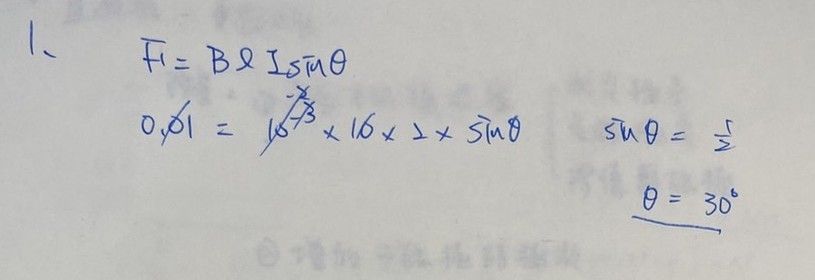 1、 F1 = B l I sinθ
0.01 = 10⁻³ × 10 × 2 × sinθ sinθ = 1/2
θ = 30°